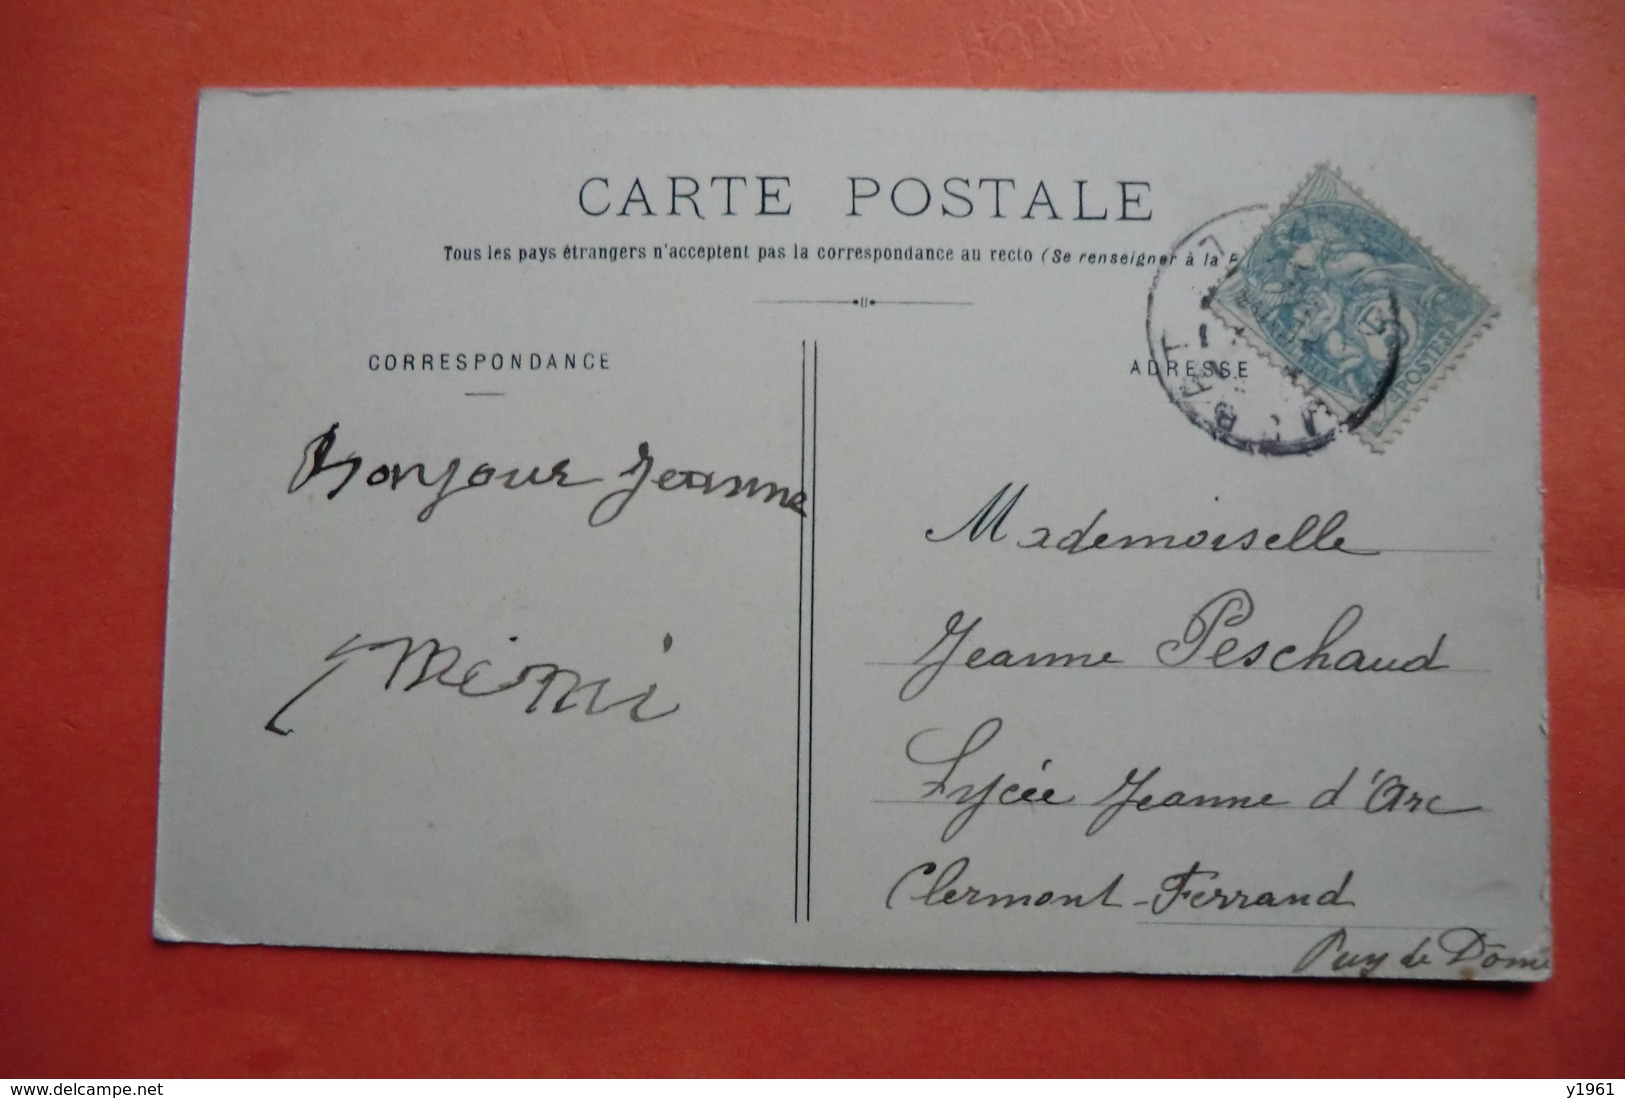 CARTE POSTALE
Tous les pays étrangers n'acceptent pas la correspondance au recto (Se renseigner à la
CORRESPONDANCE
ADRESSE
POSTES
Bonjour Jeanne
Mimi
Mademoiselle
Jeanne Peschaud
Lycée Jeanne d'Arc
Clermont-Ferrand
Puy de Dôme
www.delcampe.net
y1961